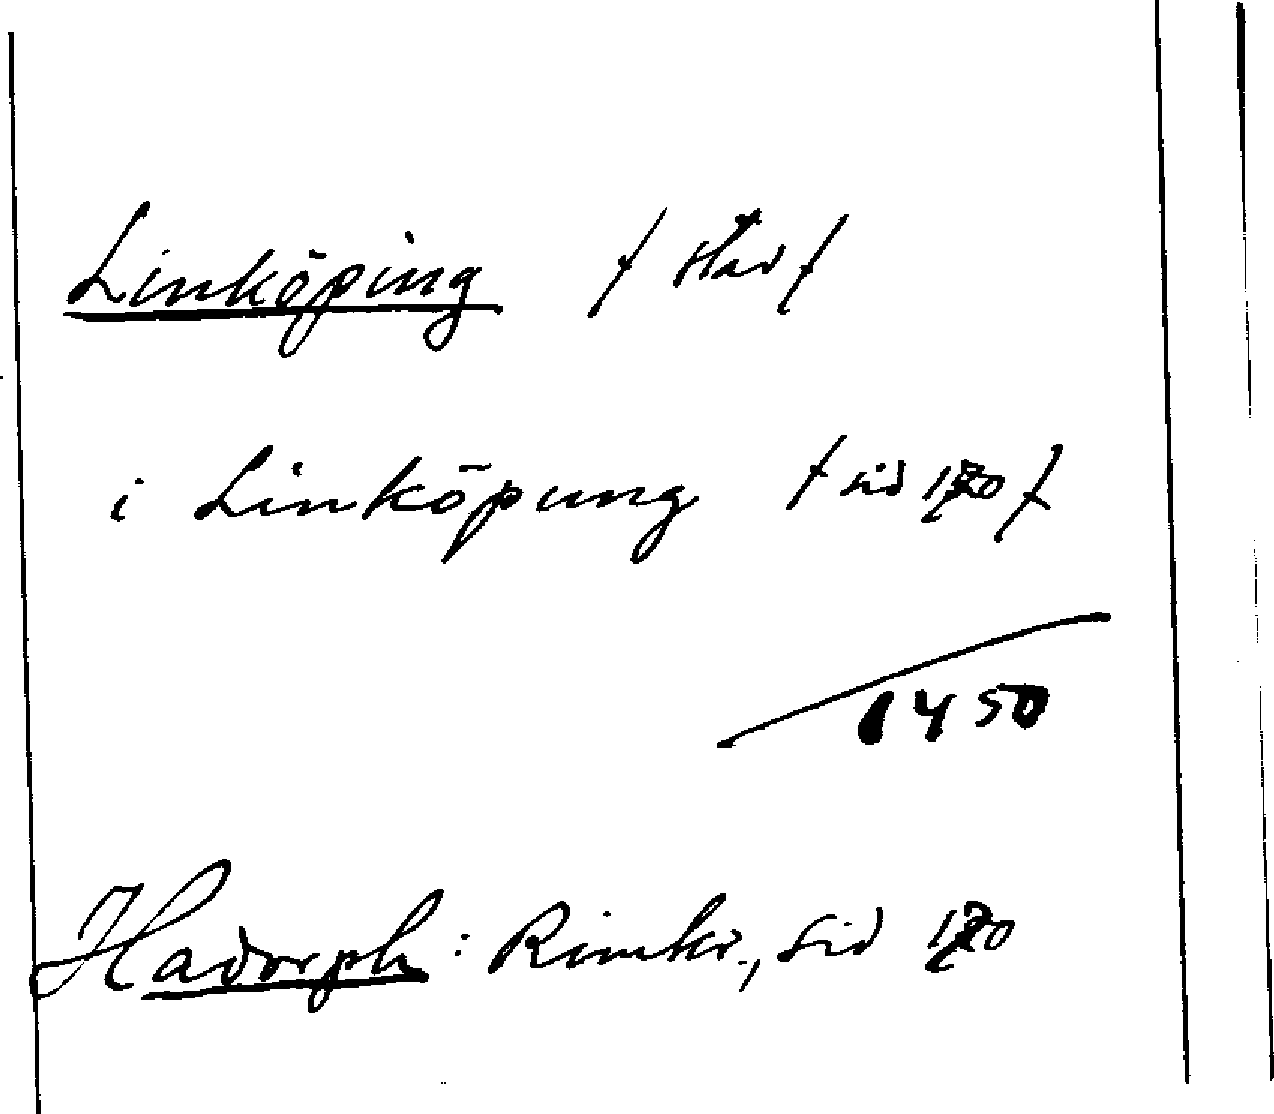 Linköping / stad /
i Linköpung / sid /
1450
Hadorph: Rimkr., sid